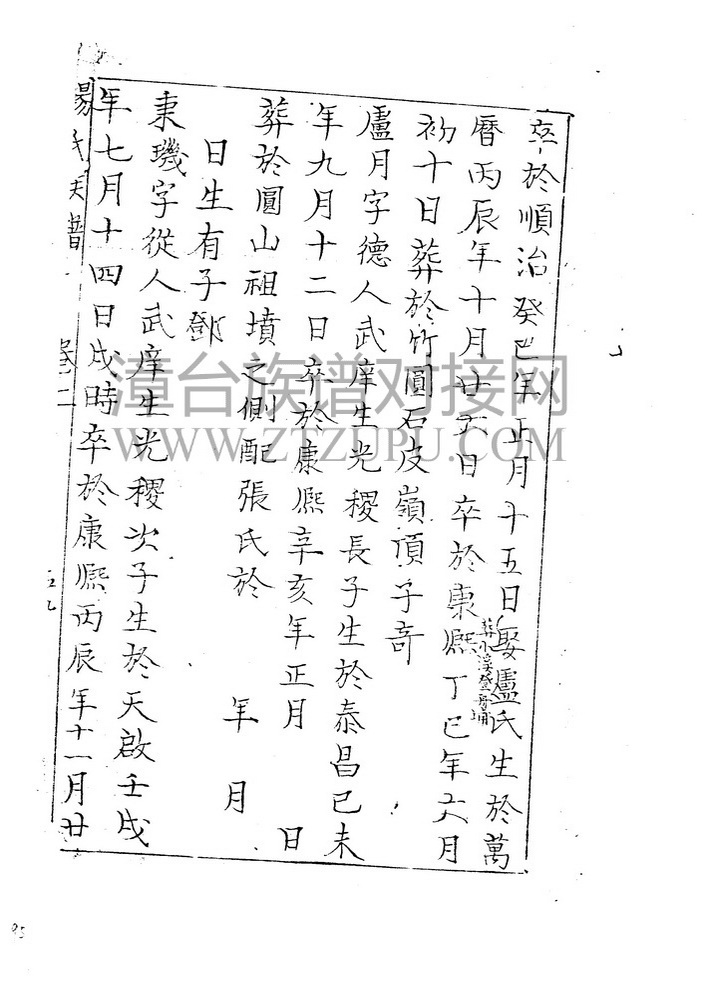 卒於順治癸巳年正月十五日娶盧氏生於萬
葬小溪
曆丙辰年十月廿六日卒於康熙丁巳年六月
初十日葬於竹圓石皮嶺頂子奇
盧月字德人武庠生光稷長子生於泰昌己未
年九月十二日卒於康熙辛亥年正月 日
葬於圓山祖墳之側配張氏於 年 月
日生有子鄧
秉璣字從人武庠生光稷次子生於天啟壬戌
年七月十四日戌時卒於康熙丙辰年十一月廿
楊氏族譜 卷二 五九
漳台族谱对接网
WWW.ZTZUPU.COM
85